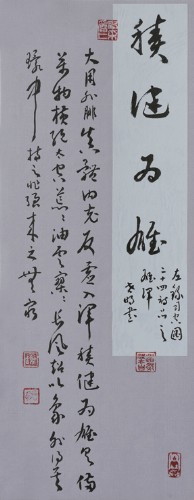 積健為雄
左錄司空圖
二十四詩品之
雄渾
大用外腓真體內充反虛入渾積健為雄具備
萬物橫絕太空荒〻油雲寥〻長風超以象外得其
環中持之匪強來之無窮